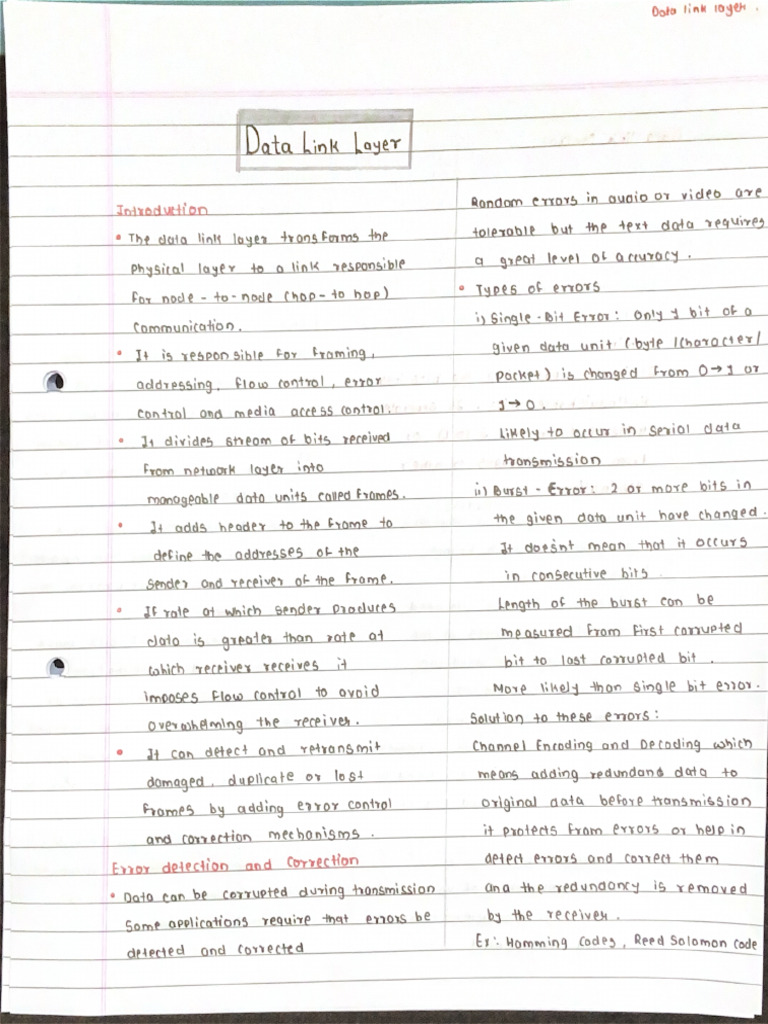 Data link layer.
Data Link Layer
Introduction
• The data link layer transforms the
physical layer to a link responsible
for node - to - node (hop - to hop)
communication.
• It is responsible for framing,
addressing, flow control, error
control and media access control.
• It divides stream of bits received
from network layer into
manageable data units called frames.
• It adds header to the frame to
define the addresses of the
sender and receiver of the frame.
• If rate at which sender produces
data is greater than rate at
which receiver receives it
imposes flow control to avoid
overwhelming the receiver.
• It can detect and retransmit
damaged, duplicate or lost
frames by adding error control
and correction mechanisms.
Error detection and Correction
• Data can be corrupted during transmission
Some applications require that errors be
detected and corrected
Random errors in audio or video are
tolerable but the text data requires
a great level of accuracy.
• Types of errors
i) Single - Bit Error: Only 1 bit of a
given data unit (byte /character/
packet) is changed from 0→1 or
1→0.
Likely to occur in serial data
transmission
ii) Burst - Error: 2 or more bits in
the given data unit have changed.
It doesn't mean that it occurs
in consecutive bits.
Length of the burst can be
measured from first corrupted
bit to last corrupted bit.
More likely than single bit error.
Solution to these errors:
Channel Encoding and Decoding which
means adding redundand data to
original data before transmission
it protects from errors or help in
detect errors and correct them
and the redundancy is removed
by the receiver.
Ex:- Hamming codes, Reed Solomon code